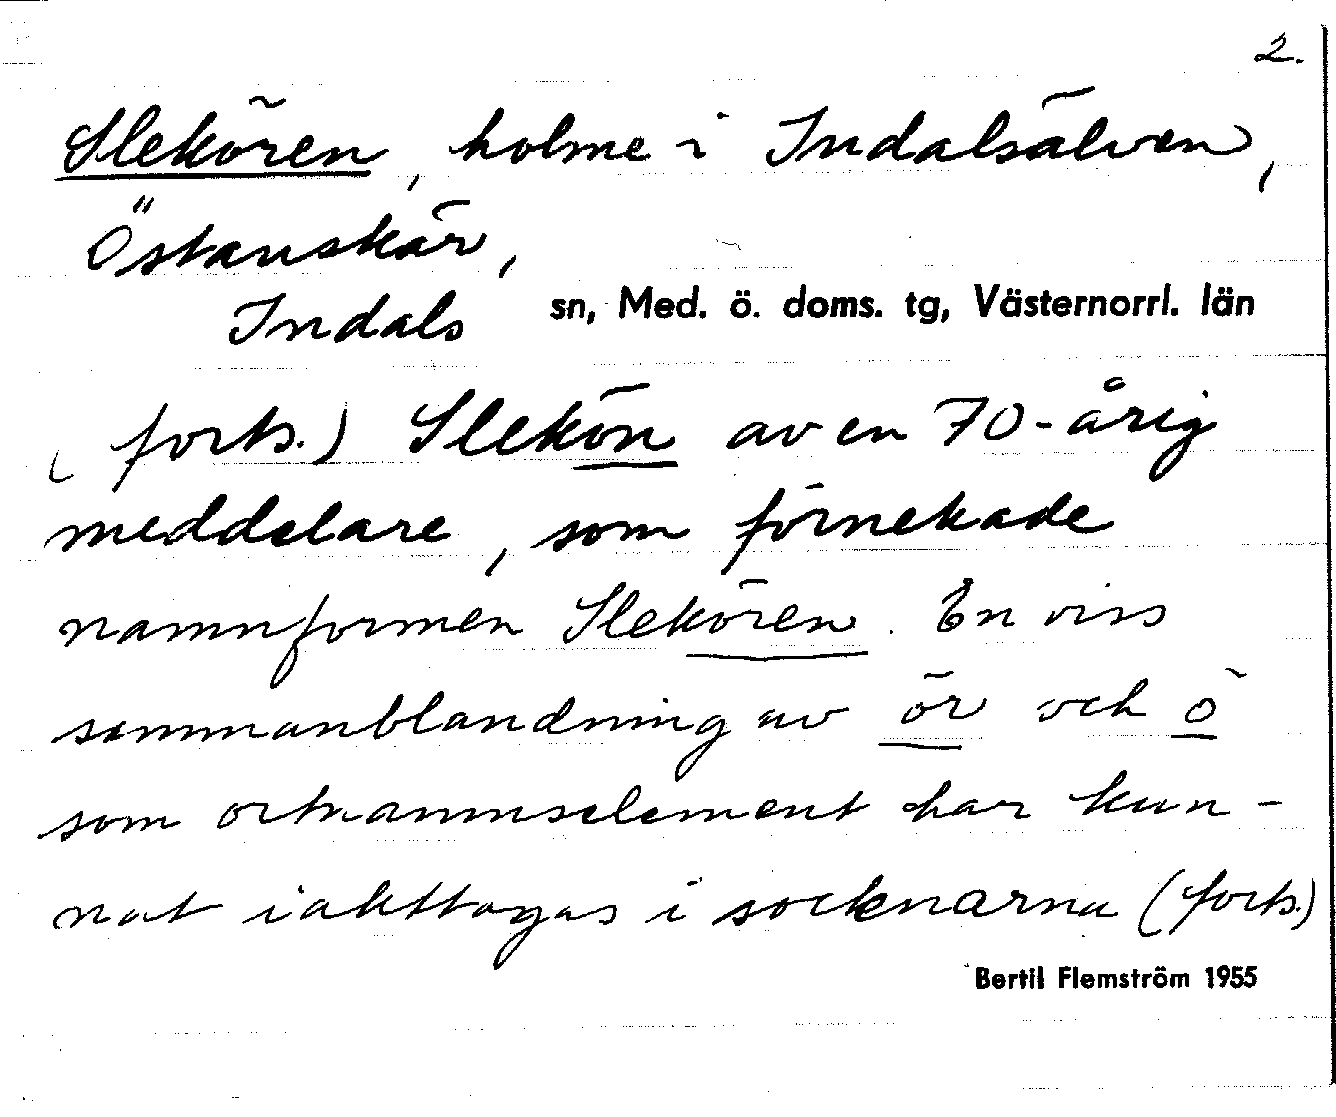 2.
Slekören, holme i Indalsälven,
Östanskär,
Indals sn, Med. ö. doms. tg, Västernorrl. län
(forts.) Slekön av en 70-årig
meddelare, som förnekade
namnformen Slekören. En viss
sammanblandning av ör och ö
som ortnamnselement har kun-
nat iakttagas i socknarna (forts.)
Bertil Flemström 1955